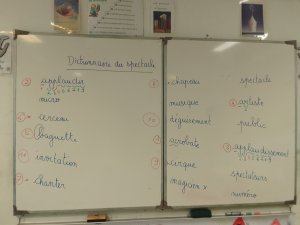 Dictionnaire du spectacle
② applaudir
micro
cerceau
baguette
invitation
chanter
chapeau
musique
déguisement
acrobate
cirque
magicien x
spectacle
① artiste
public
③ applaudissement
spectateurs
numéro